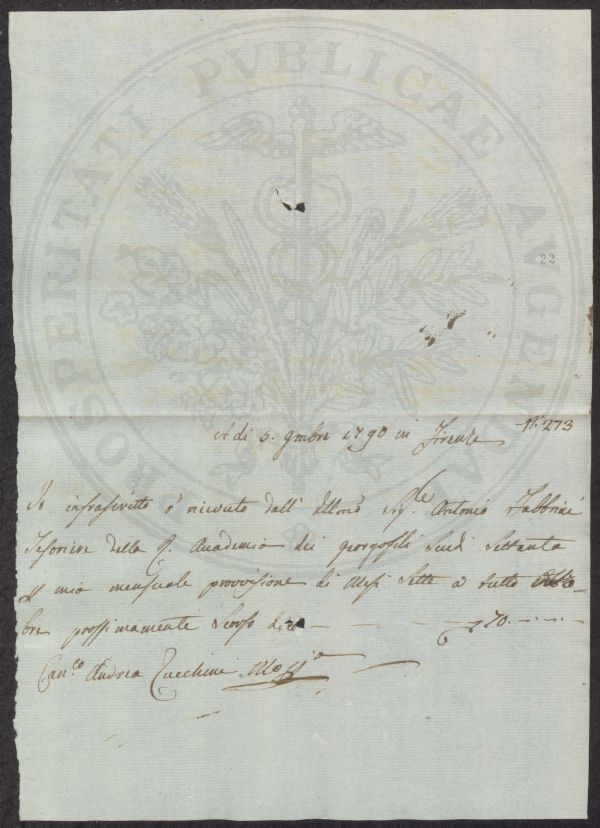 PROSPERITATI PVBLICAE AVGENDAE
22
A di 5. 9mbre 1790 in Firenze N.° 273
Io infrascritto ò ricevuto dall' Sig.re Antonio Fabbrini
Tesoriere della R. Accademia dei georgofili Scudi Settanta
mia mensuale provvisione di Mesi Sette a tutto
bre prossimamente scorso 70.
Can.co Andrea Zucchini